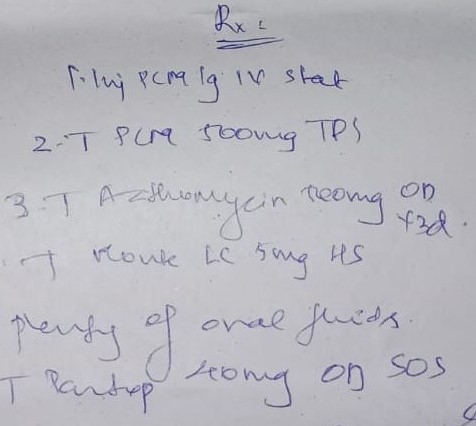 Rx :
1. Inj PCM 1g IV stat
2. T PCM 500mg TDS
3. T Azithromycin 500mg OD x3d.
. T Monte LC 5mg HS
plenty of oral fluids.
T Pantop 40mg OD SOS